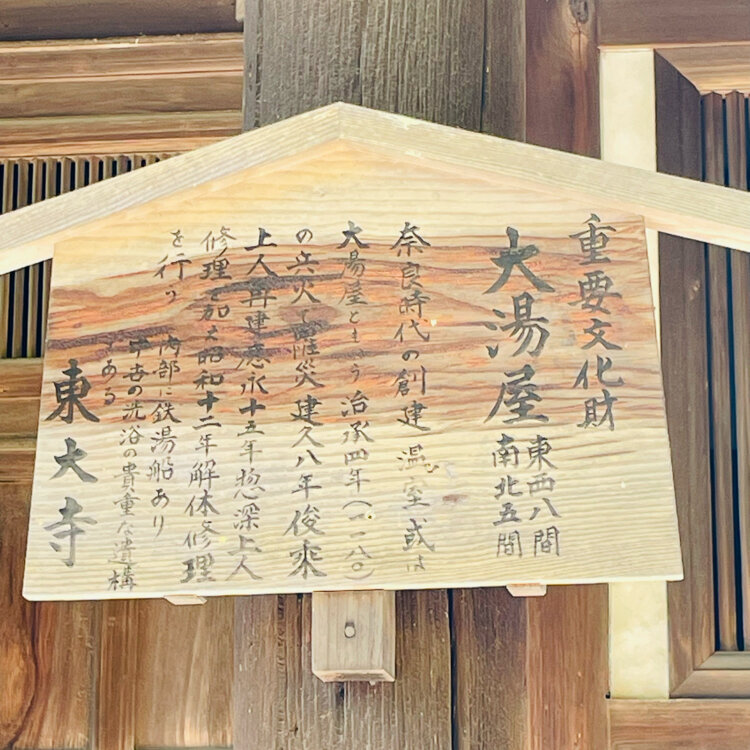 重要文化財
大湯屋
東西八間
南北五間
奈良時代の創建 温室或は
大湯屋ともいう 治承四年(一一八〇)
の兵火に罹災 建久八年俊乘
上人再建應永十五年惣深上人
修理を加え昭和十二年解体修理
を行う
内部に鉄湯船あり
中古の洗浴の貴重な遺構
である
東大寺